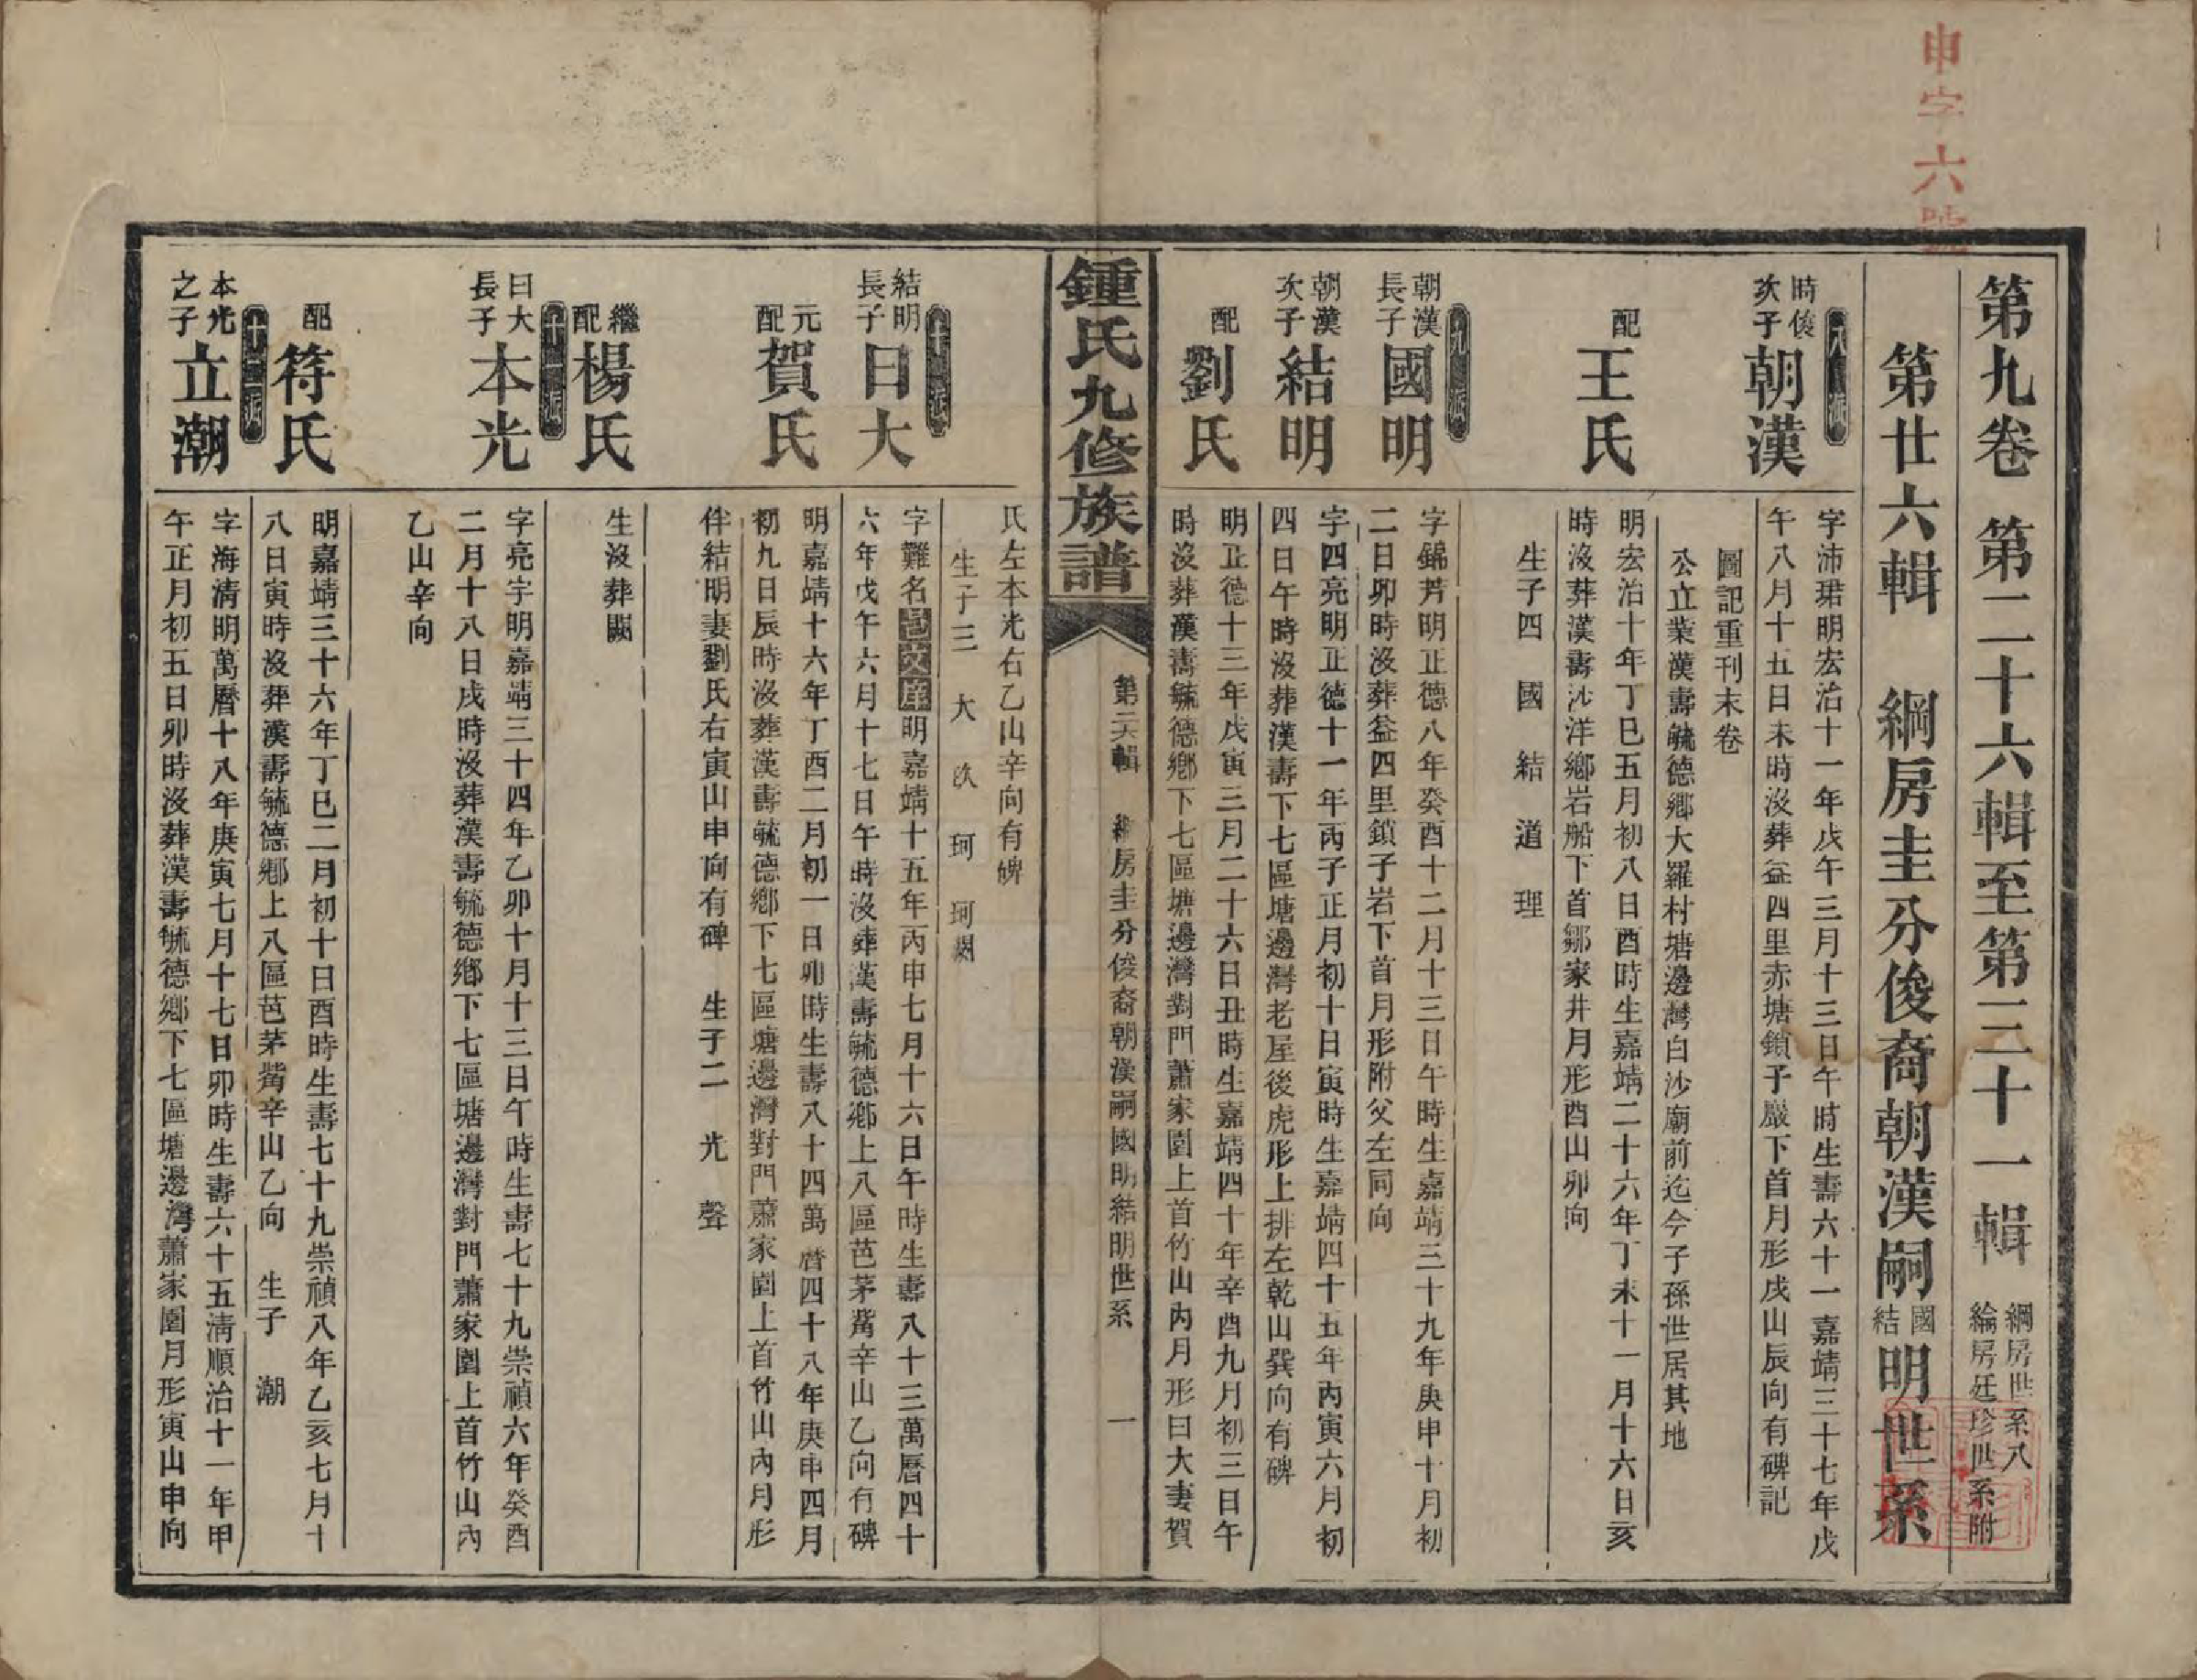 申字六號
第九卷 第二十六輯至第三十一輯 綱房世系八 綸房廷珍世系附
第廿六輯 綱房圭分俊裔朝漢嗣國結明世系
八派
時俊次子 朝漢
字沛珺明宏治十一年戊午三月十三日午時生壽六十一嘉靖三十七年戊
午八月十五日未時沒葬益四里赤塘鎖子巖下首月形戌山辰向有碑記
圖記重刊末卷
公立業漢壽毓德鄉大羅村塘邊灣白沙廟前迄今子孫世居其地
配 王氏
明宏治十年丁巳五月初八日酉時生嘉靖二十六年丁未十一月十六日亥
時沒葬漢壽沙洋鄉岩船下首鄒家井月形酉山卯向
生子四 國 結 道 理
九派
朝漢長子 國明
字錦芳明正德八年癸酉十二月十三日午時生嘉靖三十九年庚申十月初
二日卯時沒葬益四里鎖子岩下首月形附父左同向
朝漢次子 結明
字四亮明正德十一年丙子正月初十日寅時生嘉靖四十五年丙寅六月初
四日午時沒葬漢壽下七區塘邊灣老屋後虎形上排左乾山巽向有碑
配 劉氏
明正德十三年戊寅三月二十六日丑時生嘉靖四十年辛酉九月初三日午
時沒葬漢壽毓德鄉下七區塘邊灣對門蕭家園上首竹山內月形曰大妻賀
鍾氏九修族譜
第二六輯 綱房圭分俊裔朝漢嗣國明結明世系 一
氏左本光右乙山辛向有碑
生子三 大 欥 珂 珂闕
十派
結明長子 曰大
字難名邑文庠明嘉靖十五年丙申七月十六日午時生壽八十三萬曆四十
六年戊午六月十七日午時沒葬漢壽毓德鄉上八區芭茅觜辛山乙向有碑
元配 賀氏
明嘉靖十六年丁酉二月初一日卯時生壽八十四萬曆四十八年庚申四月
初九日辰時沒葬漢壽毓德鄉下七區塘邊灣對門蕭家園上首竹山內月形
伴結明妻劉氏右寅山申向有碑 生子二 光 聲
繼配 楊氏
生沒葬闕
十一派
曰大長子 本光
字亮宇明嘉靖三十四年乙卯十月十三日午時生壽七十九崇禎六年癸酉
二月十八日戌時沒葬漢壽毓德鄉下七區塘邊灣對門蕭家園上首竹山內
乙山辛向
配 符氏
明嘉靖三十六年丁巳二月初十日酉時生壽七十九崇禎八年乙亥七月十
八日寅時沒葬漢壽毓德鄉上八區芭茅觜辛山乙向 生子 潮
十二派
本光之子 立潮
字海清明萬曆十八年庚寅七月十七日卯時生壽六十五清順治十一年甲
午正月初五日卯時沒葬漢壽毓德鄉下七區塘邊灣蕭家園月形寅山申向